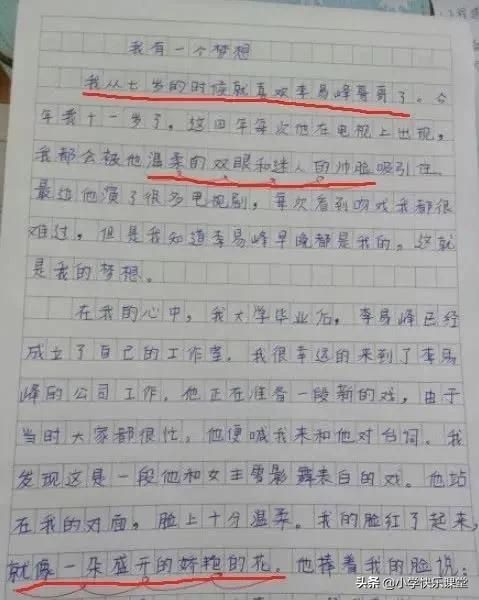 我有一个梦想
我从七岁的时候就喜欢李易峰哥哥了。今
年我十一岁了，这四年每次他在电视上出现，
我都会被他温柔的双眼和迷人的帅脸吸引住。
最近他演了很多电视剧，每次看到吻戏我都很
难过，但是我知道李易峰早晚都是我的。这就
是我的梦想。
在我的心中，我大学毕业后，李易峰已经
成立了自己的工作室，我很幸运的来到了李易
峰的公司工作，他正在准备一段新的戏，由于
当时大家都很忙，他便喊我来和他对台词，我
发现这是一段他和女主雪影舞表白的戏。他站
在我的对面，脸上十分温柔。我的脸红了起来，
就像一朵盛开的娇艳的花。他捧着我的脸说：
头条 @小学快乐课堂